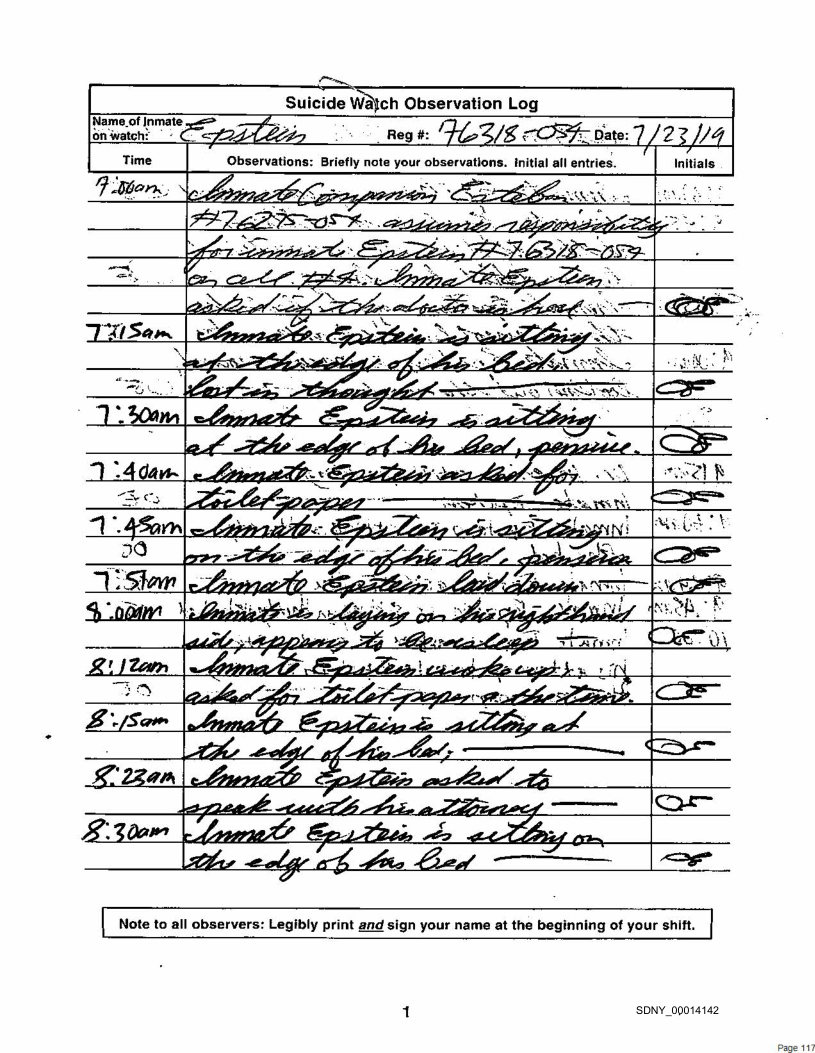 Suicide Watch Observation Log
Name of Inmate on watch: Epstein Reg #: 76318-054 Date: 7/23/19
Time Observations: Briefly note your observations. Initial all entries. Initials
7:00am Inmate Companion Esteban
#76275-054 assumes responsibility
for inmate Epstein #76318-054
on cell #4. Inmate Epstein
asked if the doctor is here
7:15am Inmate Epstein is sitting
at the edge of his bed
lost in thought
7:30am Inmate Epstein is sitting
at the edge of his bed, pensive.
7:40am Inmate Epstein asked for
toilet-paper
7:45am Inmate Epstein is sitting
on the edge of his bed, pensive
7:51am Inmate Epstein laid down
8:00am Inmate is laying on his right hand
side, appears to be asleep
8:12am Inmate Epstein woke up
asked for toilet-paper a the time.
8:15am Inmate Epstein is sitting at
the edge of his bed;
8:23am Inmate Epstein asked to
speak with his attorney
8:30am Inmate Epstein is sitting on
the edge of has bed
Note to all observers: Legibly print and sign your name at the beginning of your shift.
1 SDNY_00014142
Page 117